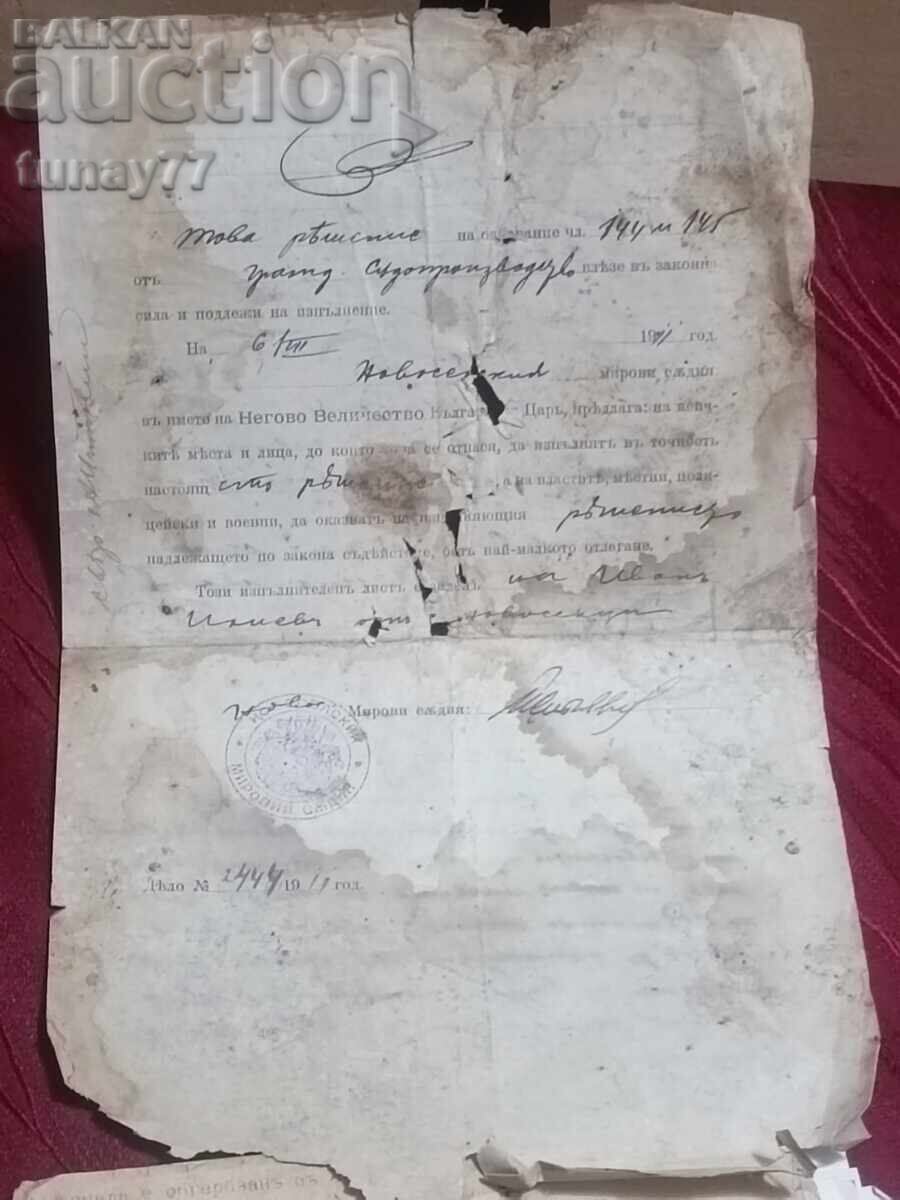 BALKAN
auction
tunay77
Това рѣшение на основание чл. 144 и 145
отъ гражд. Судопроизводство влѣзе въ законна
сила и подлежи на изпълнение.
На 6/VII 1911 год.
Новоселский мирови сѫдия
въ името на Негово Величество Българ Царь, прѣдлага: на всич-
китѣ мѣста и лица, до които това се отнася, да изпълнятъ въ точность
настоящ ето рѣшение, а на властитѣ, мѣстни, поли-
цейски и военни, да оказватъ на изпълняющия рѣшението
надлежащето по закона съдѣйствие, безъ най-малкото отлагане.
Този изпълнителенъ листъ се издаде на Иванъ
отъ
Мирови сѫдия:
МИРОВИЙ СѪДИЯ
Дѣло № 2444 1911 год.